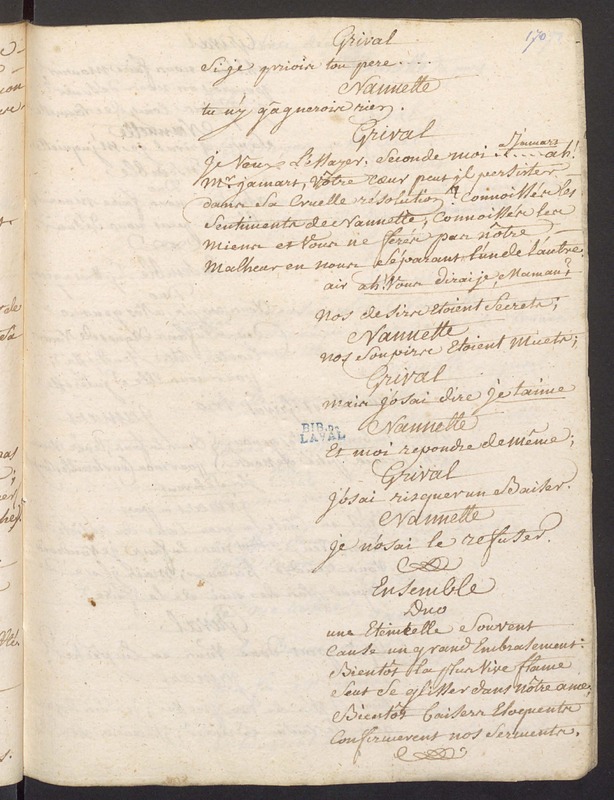 170
Grival
Si je priois ton pere....
Nannette
tu n'y gagnerois rien.
Grival
je Veux L'Essayer. Seconde moi à Jamart .... ah!
Mr. Jamart, Vôtre cœur peut il persister
dans sa Cruelle résolution? Connoissés les
Sentiments de Nannette, Connoissés les
Miens et Vous ne ferés pas nôtre
Malheur en nous Séparant l'un de l'autre.
air ah! Vous dirai je, Maman?
nos desirs Etoient Secrets;
Nannette
nos Soupirs Etoient Muets;
Grival
mais j'osai dire je t'aime
Nannette
Et moi repondre de même;
Grival
j'osai risquer un Baiser.
Nannette
je n'osai le refuser.
Ensemble
Duo
une Etincelle Souvent
Cause un grand Embrasement:
Bientôt la plus Vive flame
Seut Se glisser dans nôtre ame,
Bientôt baisers Eloquents
Confirmerent nos Serments.
BIB. DE
LAVAL